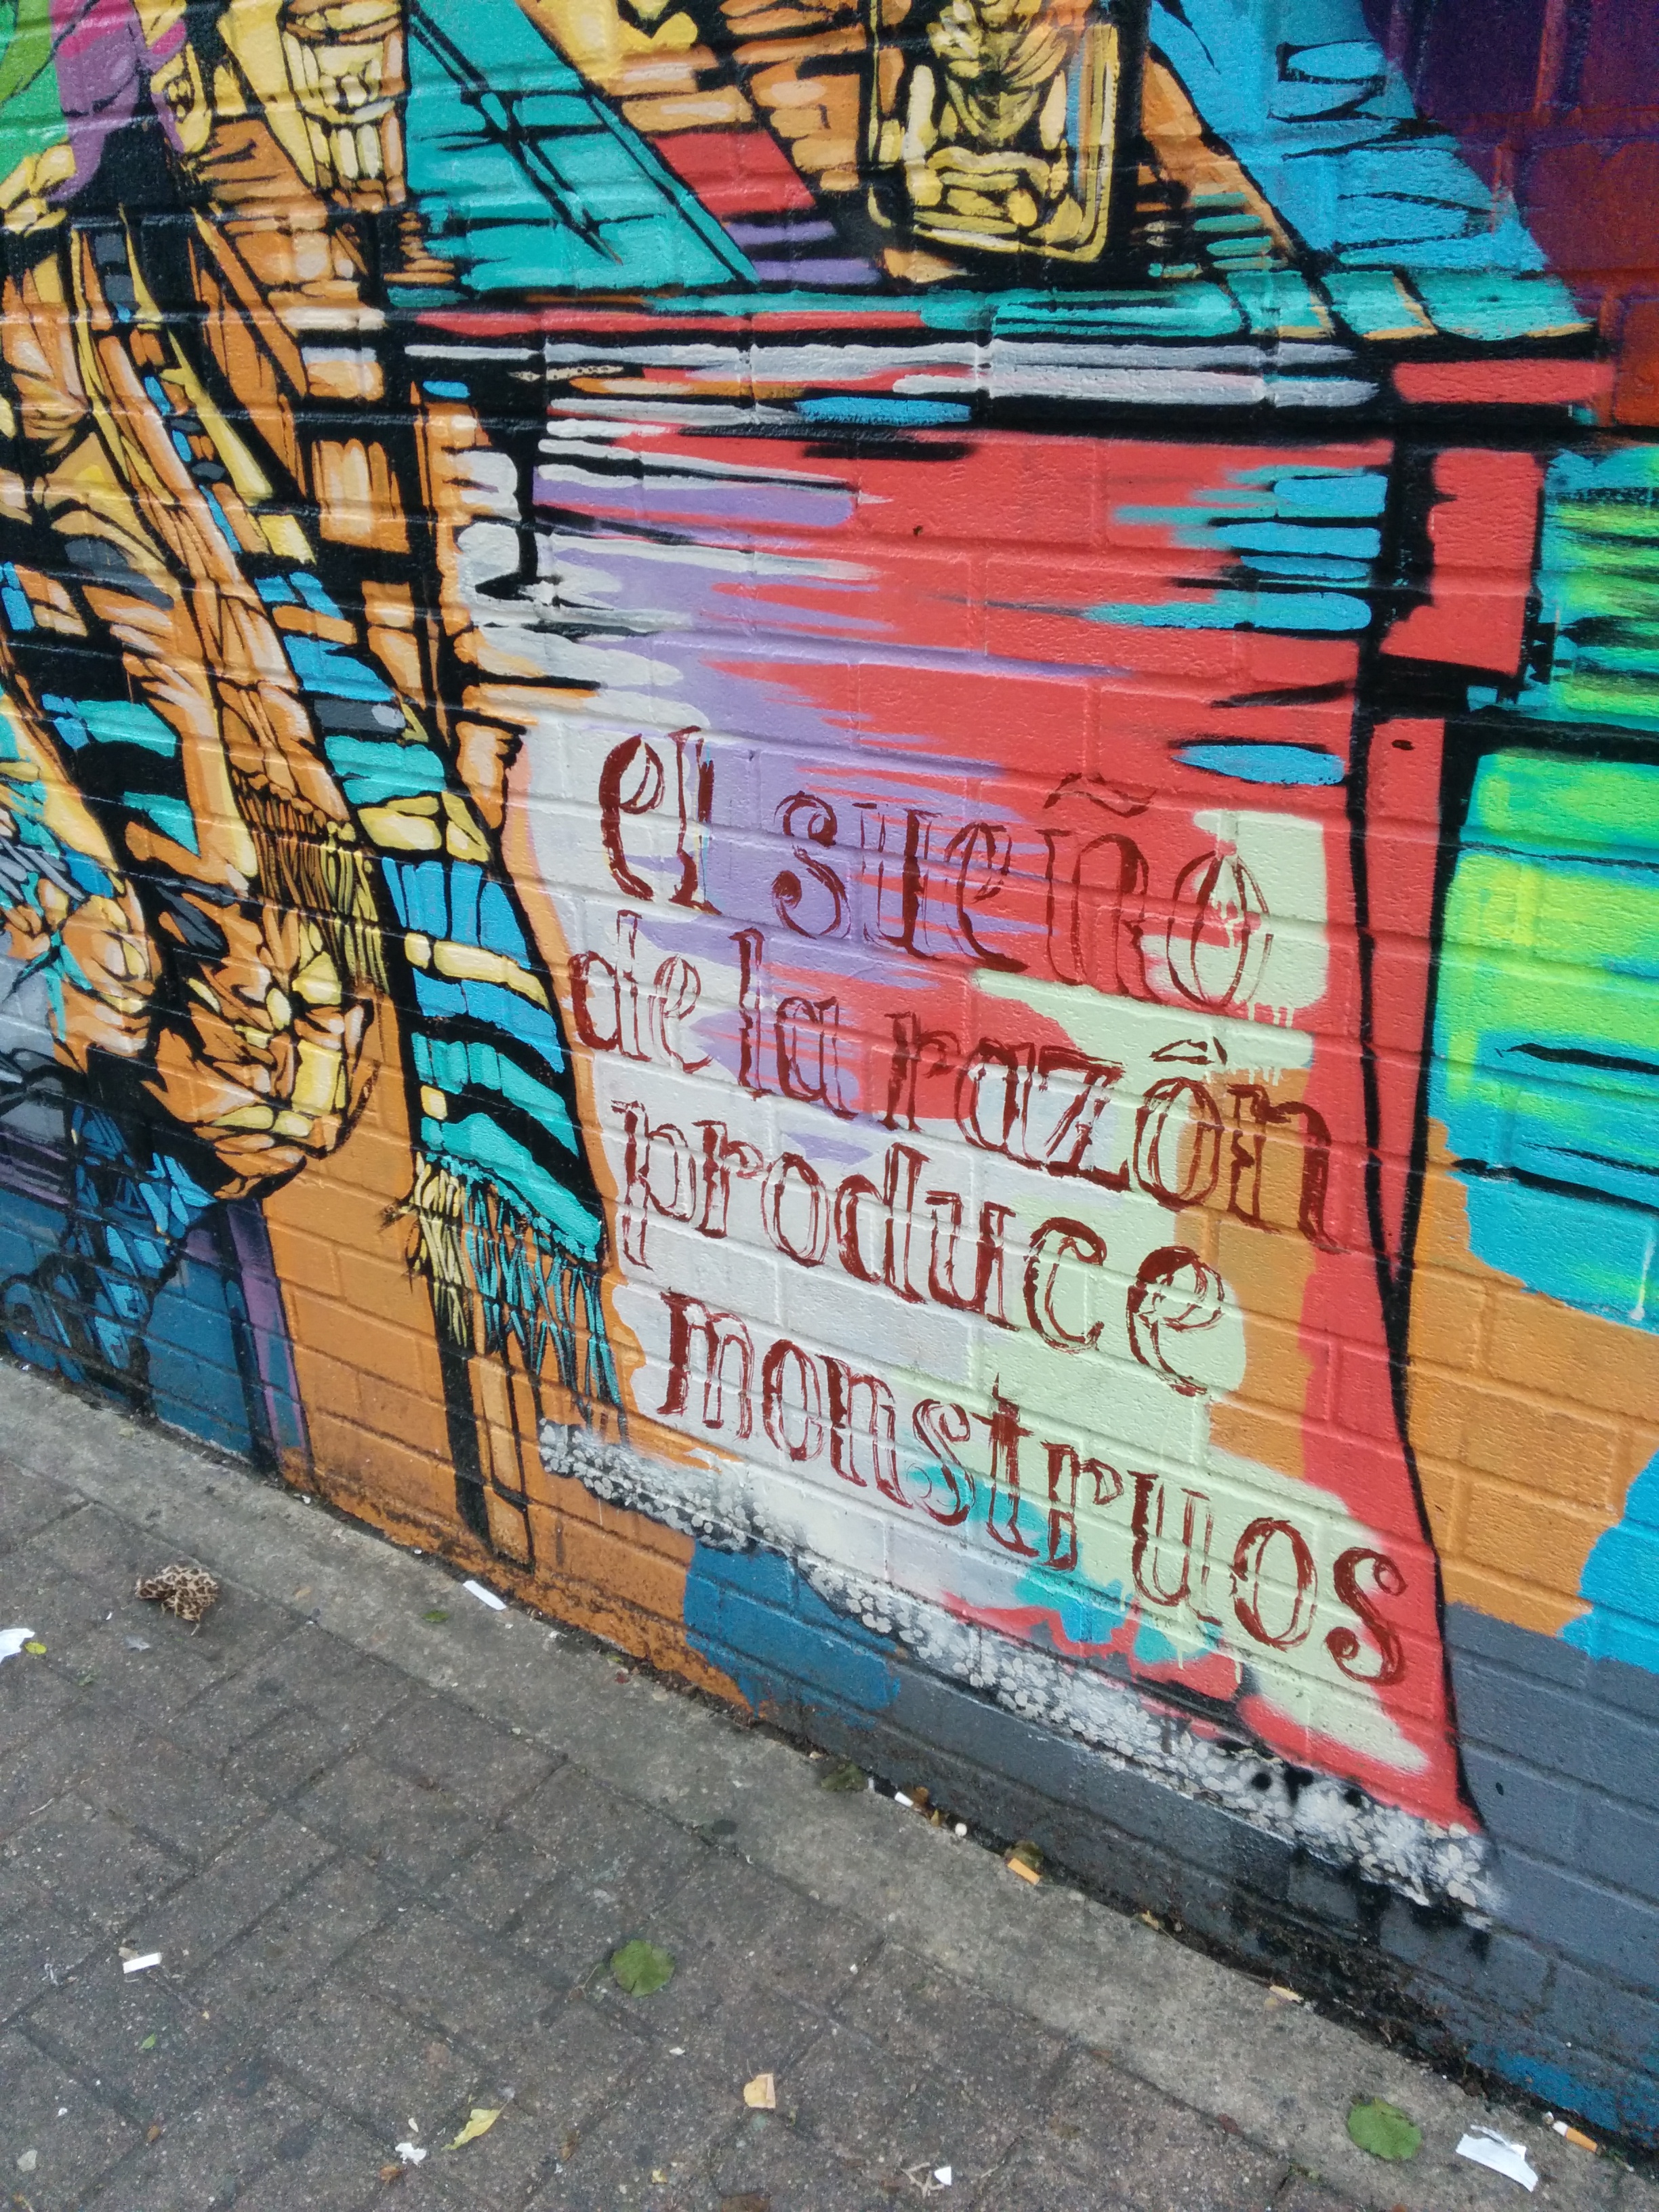 el sueño
de la razón
produce
monstruos